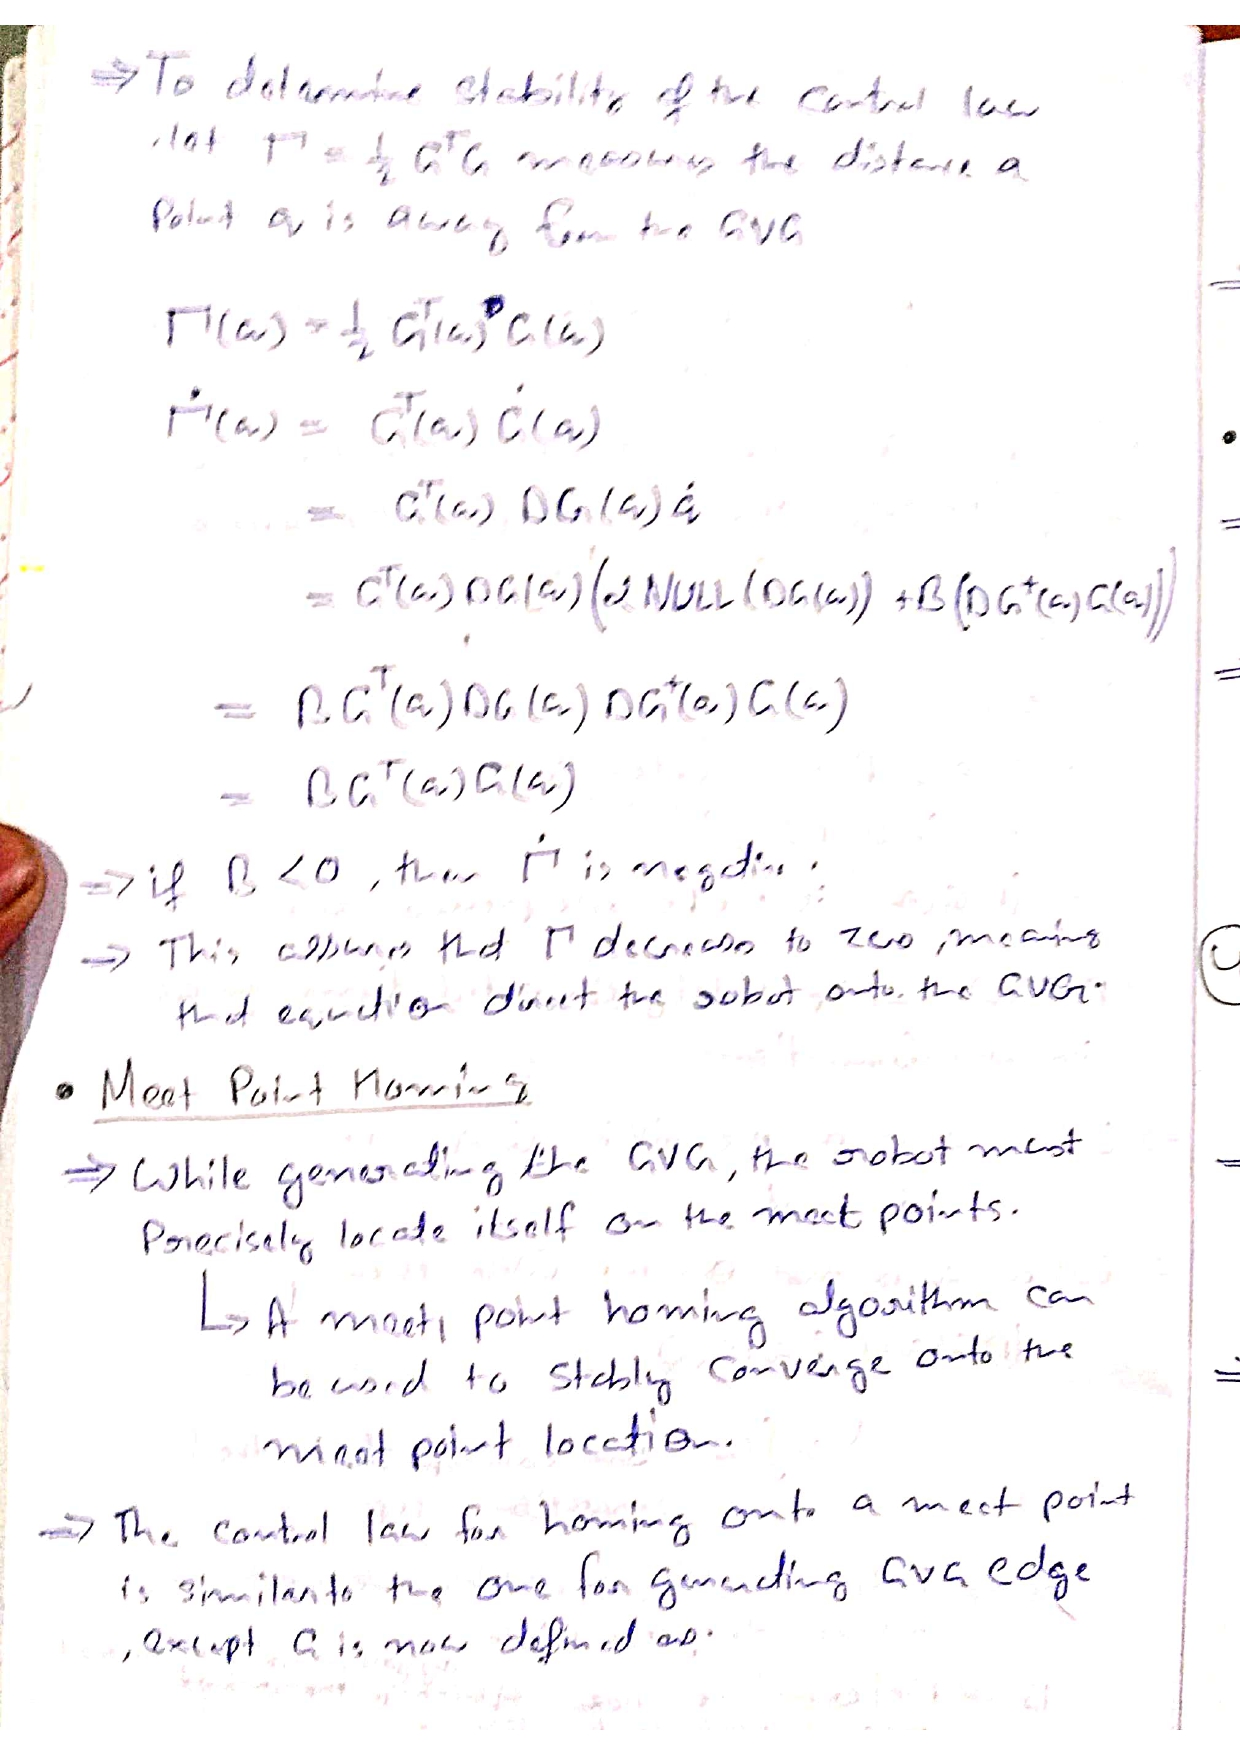 ⇒ To determine stability of the control law
, let Γ = ½ GᵀG measures the distance a
Point q is away from the GVG
Γ(q) = ½ Gᵀ(q) G(q)
Γ̇(q) = Gᵀ(q) Ġ(q)
= Gᵀ(q) DG(q) q̇
= Gᵀ(q) DG(q) (α NULL(DG(q)) + β(DG⁺(q) G(q)))
= β Gᵀ(q) DG(q) DG⁺(q) G(q)
= β Gᵀ(q) G(q)
⇒ if β < 0, then Γ̇ is negative.
⇒ This assures that Γ decreases to zero, meaning
that equation direct the robot onto the GVG.
• Meet Point Homing
⇒ While generating the GVG, the robot must
Precisely locate itself on the meet points.
↳ A meet point homing algorithm can
be used to stably converge onto the
meet point location.
⇒ The control law for homing onto a meet point
is similar to the one for generating GVG edge
, except G is now defined as.